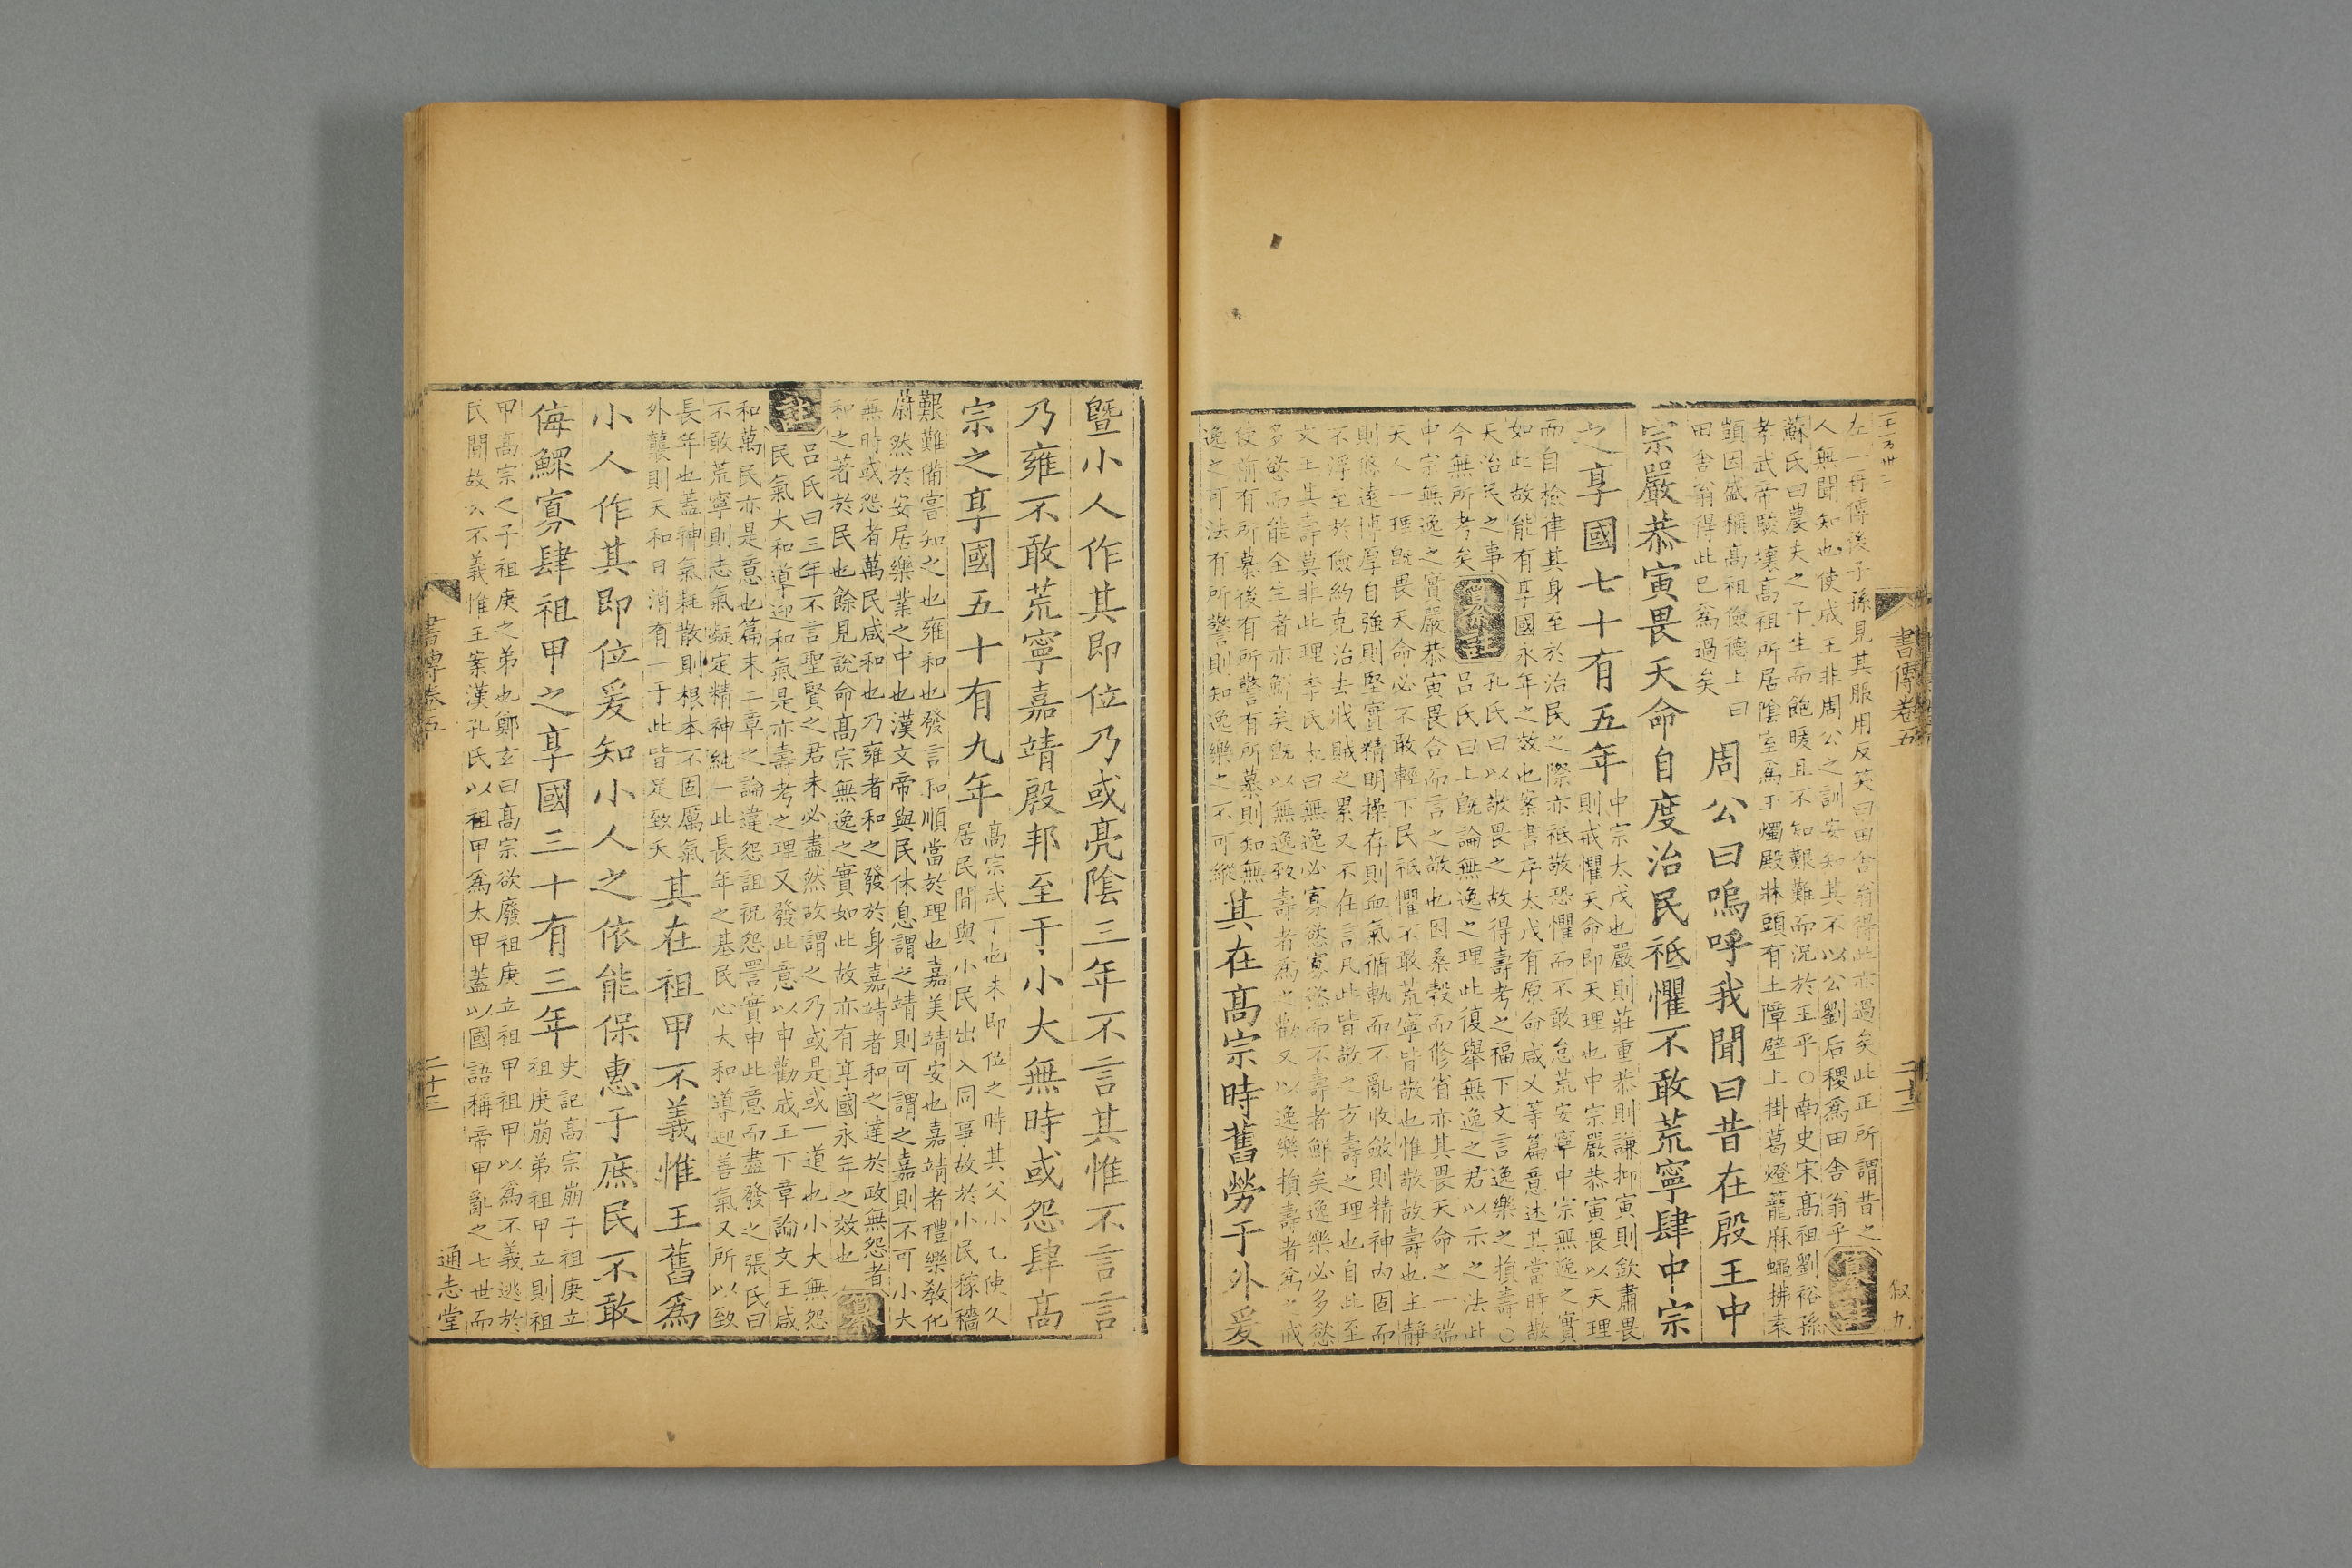 書傳卷五
二十二
左一再傳後子孫見其服用反笑曰田舍翁得此亦過矣此正所謂昔之
人無聞知也使成王非周公之訓安知其不以公劉后稷爲田舍翁乎纂註
蘇氏曰農夫之子生而飽暖且不知艱難而況於王乎○南史宋髙祖劉裕孫
孝武帝駿壞髙祖所居隂室爲玉燭殿牀頭有土障壁上掛葛燈籠麻蠅拂袁
顗因盛稱髙祖儉德上曰
田舍翁得此已爲過矣
周公曰嗚呼我聞曰昔在殷王中
宗嚴恭寅畏天命自度治民祗懼不敢荒寧肆中宗
之享國七十有五年
中宗太戊也嚴則莊重恭則謙抑寅則欽肅畏
則戒懼天命即天理也中宗嚴恭寅畏以天理
而自檢律其身至於治民之際亦祗敬恐懼而不敢怠荒安寧中宗無逸之實
如此故能有享國永年之效也案書序太戊有原命咸乂等篇意述其當時敬
天治民之事
今無所考矣
纂註
孔氏曰以敬畏之故得壽考之福下文言逸樂之損壽○
吕氏曰上旣論無逸之理此復舉無逸之君以示之法此
中宗無逸之實嚴恭寅畏合而言之敬也因桑榖而修省亦其畏天命之一端
天人一理旣畏天命必不敢輕下民祗懼不敢荒寧皆敬也惟敬故壽也主靜
則悠遠博厚自強則堅實精明操存則血氣循軌而不亂收斂則精神内固而
不浮至於儉約克治去戕賊之累又不在言凡此皆敬之方壽之理也自此至
文王其壽莫非此理李氏杞曰無逸必寡慾寡慾而不壽者鮮矣逸樂必多慾
多慾而能全生者亦鮮矣旣以無逸致壽者爲之勸又以逸樂損壽者爲之戒
使前有所慕後有所警有所慕則知無
逸之可法有所警則知逸樂之不可縱
其在髙宗時舊勞于外爰
暨小人作其即位乃或亮陰三年不言其惟不言言
乃雍不敢荒寧嘉靖殷邦至于小大無時或怨肆髙
宗之享國五十有九年
髙宗武丁也未即位之時其父小乙使久
居民間與小民出入同事故於小民稼穡
艱難備嘗知之也雍和也發言和順當於理也嘉美靖安也嘉靖者禮樂敎化
蔚然於安居樂業之中也漢文帝與民休息謂之靖則可謂之嘉則不可小大
無時或怨者萬民咸和也乃雍者和之發於身嘉靖者和之達於政無怨者
和之著於民也餘見說命髙宗無逸之實如此故亦有享國永年之效也
纂註
吕氏曰三年不言聖賢之君未必盡然故謂之乃或是或一道也小大無怨
民氣大和導迎和氣是亦壽考之理又發此意以申勸成王下章論文王咸
和萬民亦是意也篇末二章之論違怨詛祝怨詈實申此意而盡發之張氏曰
不敢荒寧則志氣凝定精神純一此長年之基民心大和導迎善氣又所以致
長年也蓋神氣耗散則根本不固厲氣
外襲則天和日消有一于此皆足致夭
其在祖甲不義惟王舊爲
小人作其即位爰知小人之依能保惠于庶民不敢
侮鰥寡肆祖甲之享國三十有三年
史記髙宗崩子祖庚立
祖庚崩弟祖甲立則祖
甲髙宗之子祖庚之弟也鄭玄曰髙宗欲廢祖庚立祖甲祖甲以爲不義逃於
民間故云不義惟王案漢孔氏以祖甲爲太甲蓋以國語稱帝甲亂之七世而
書傳卷五
二十三
通志堂